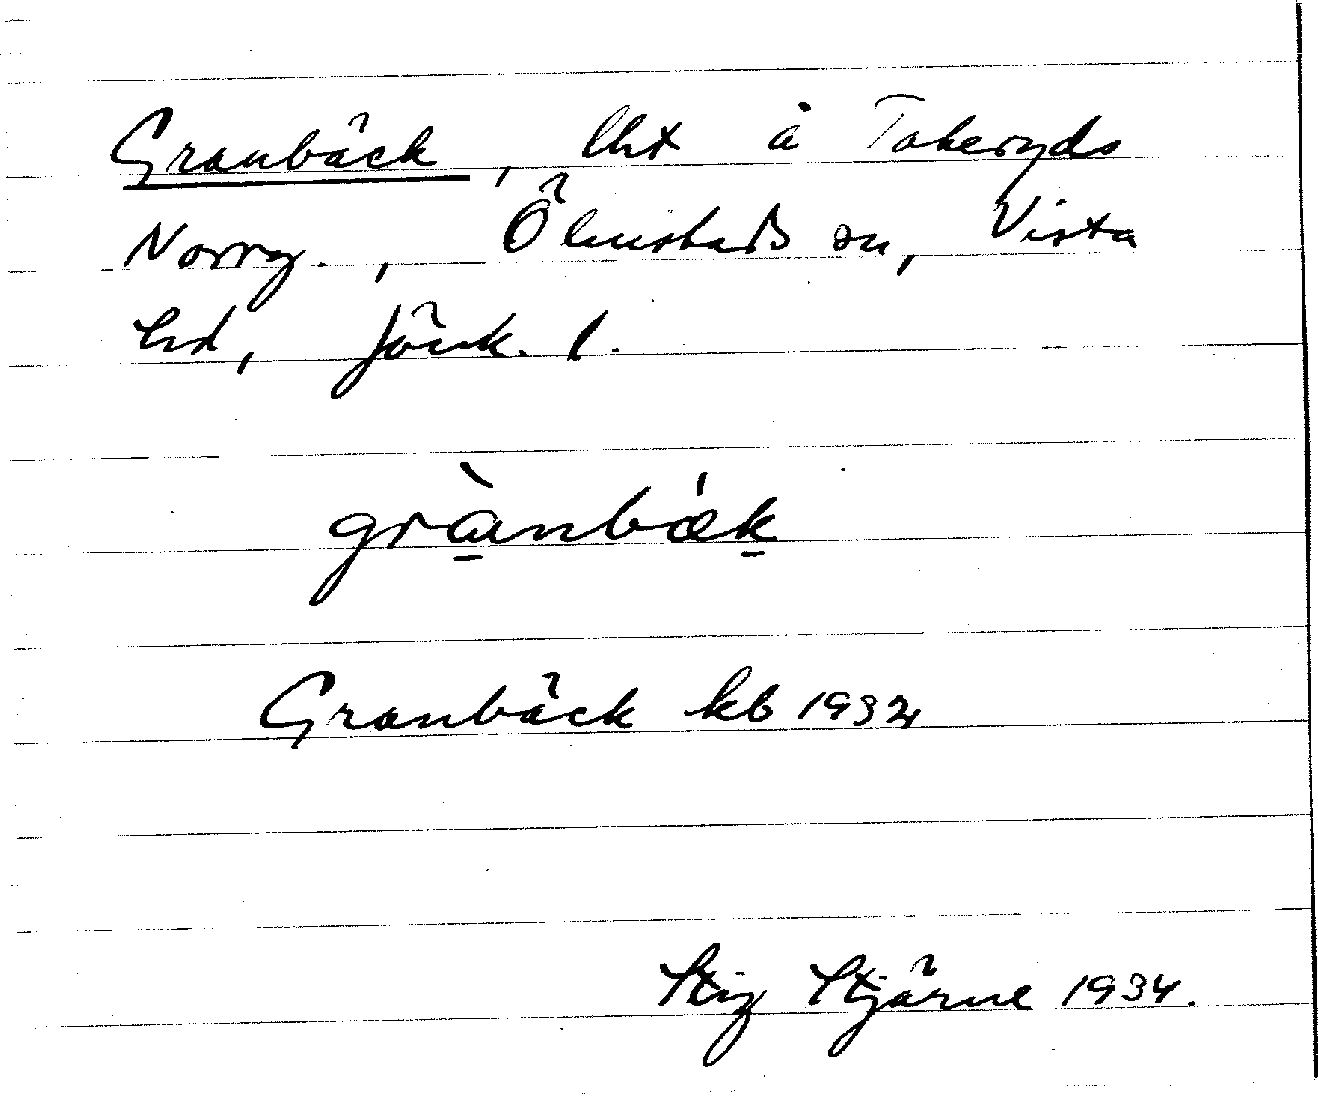 Granbäck, lht å Takeryds
Norrg., Ölmstads sn, Vista
hd, Jönk. l.
grànbǽk
Granbäck kb 1934
Stig Stjärne 1934.